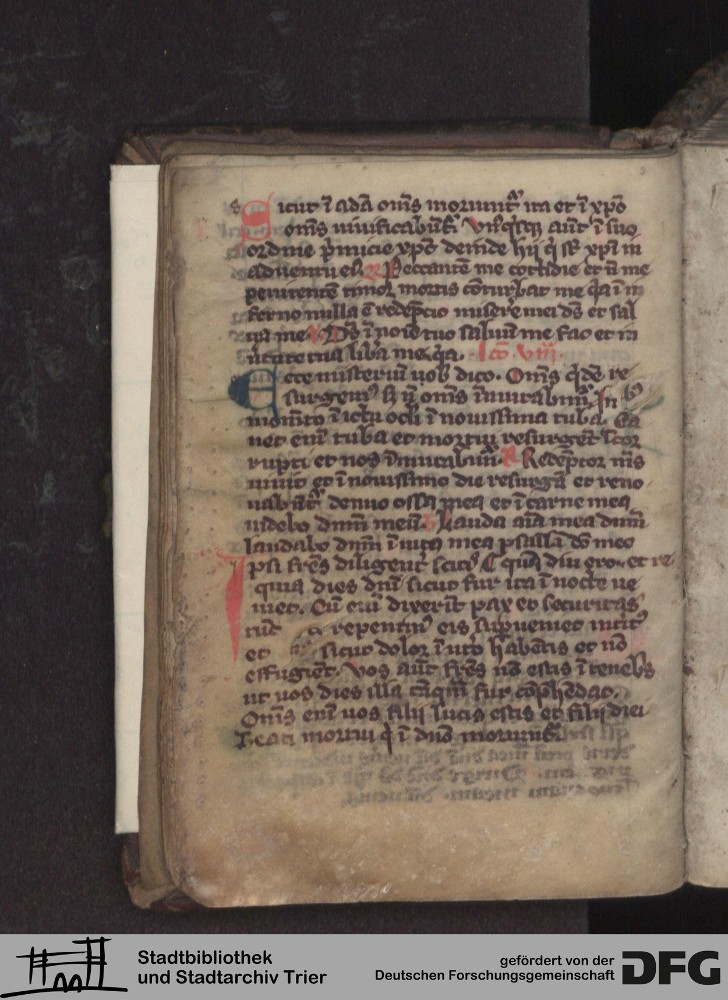 Sicut ī adā om̄s moriunt᷑ ita et ī xp̄o
om̄s uiuificabūt᷑ Vn᷑ aūt ī suo
ordine p̄micie xp̄c deinde hij q̄ sūt xp̄i in
aduentu eī R Peccantē me cottidie et nō me
penitentē timor mortis cōturbat me q̄a ī in
ferno nulla ē redēpcio miserere mei ds̄ et sal
ua me V Ds̄ ī noīe tuo saluū me fac et in
uirtute tua libera me q̄a. lc̄o. viii.
Ecce misteriū uob̄ dico. Om̄s q̄dē re
surgem᷑ s; nō om̄s īmutabim᷑. In
momēto ī ictu ocli ī nouissima tuba. Ca
net enī tuba et mortui resurgēt īcor
rupti et nos īmutabim᷑. R Redēptor m̄s
uiuit et ī nouissimo die resurgā et reno
uabūt᷑ denuo ossa mea et ī carne mea
uidebo dn̄m meū V Lauda aīa mea dn̄m
laudabo dn̄m ī uita mea psallā dō meo
Ipsi frēs diligent᷑ scitis q̄a diu ero. et re
quia dies dn̄i sicut fur ita ī nocte ue
niet. Cū enī dixerīt pax et securitas
tūc repentin᷑ eis supueniet
et sicut dolor ī ut̄o habētis et nō
effugiēt. Vos aūt frēs nō estis ī tenebs
ut uos dies illa tāq̄m fur cōphēdat.
Om̄s enī uos filij lucis estis et filij diei
Beati mortui q̄ ī dn̄o moriunt᷑
Stadtbibliothek
und Stadtarchiv Trier
gefördert von der
Deutschen Forschungsgemeinschaft
DFG